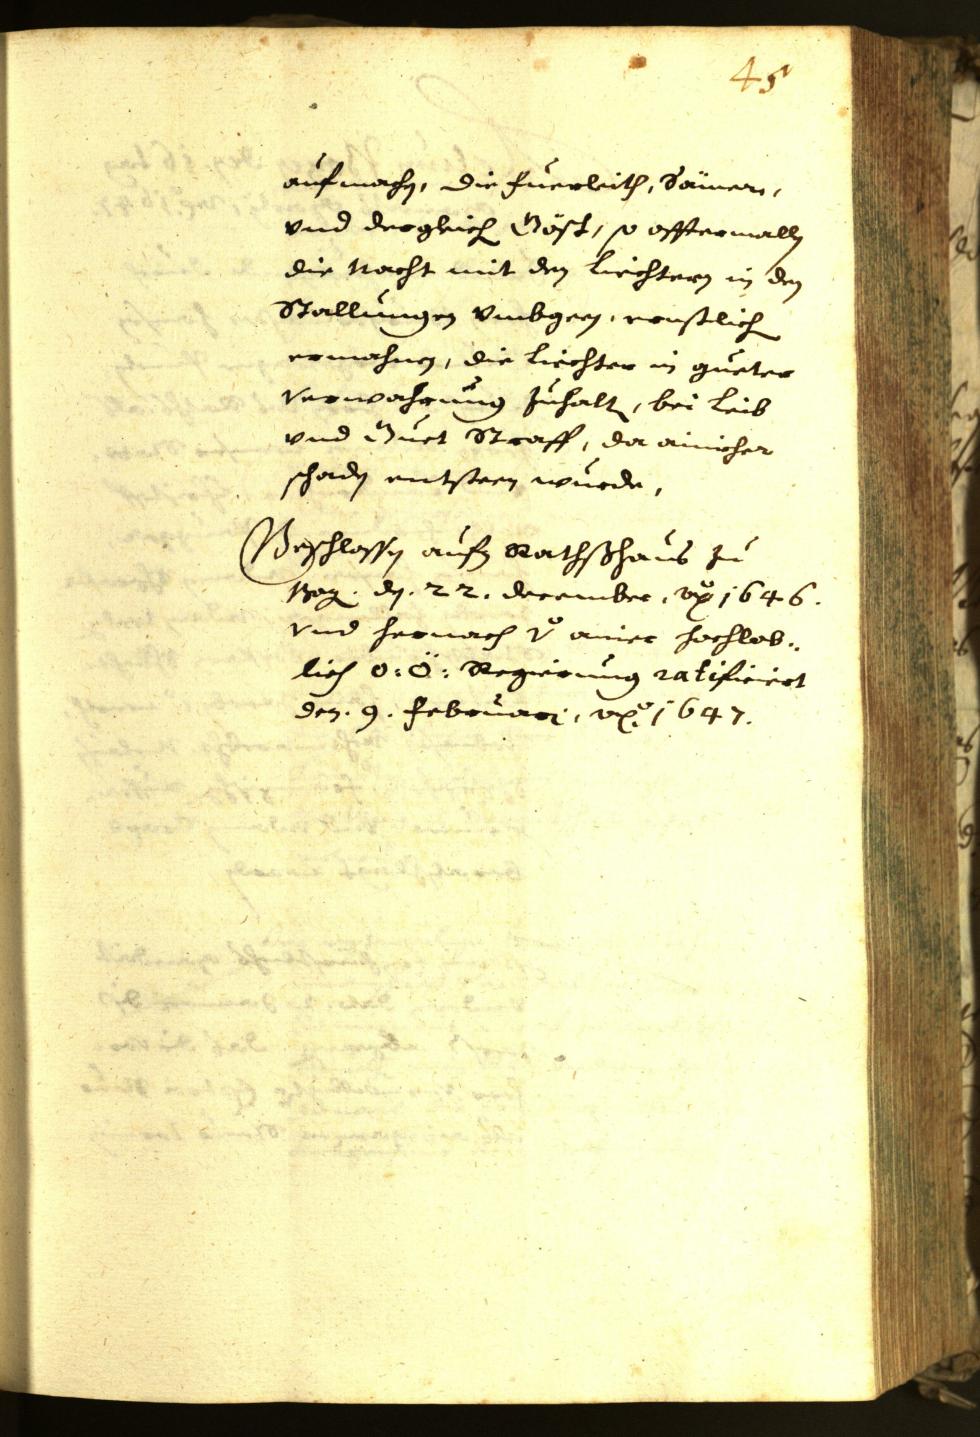 45
aufmachen, die Fuerleith, Sämer,
vnd dergleich Gäst, so offtermalln
die Nacht mit den Liechtern in den
Stallungen vmbgeen, ernstlich
ermahnen, die Liechter in gueter
verwahrung zuhalten, bei Leib
vnd Guet Straff, da ainicher
schaden entsteen wurde,
Beschlossen aufm Rathßhaus zu
Bozen den 22. December, 1646.
vnd hernach v ainer hochlob..
lich O: Ö: Regierung ratificiert
den 9. Februarj, 1647.